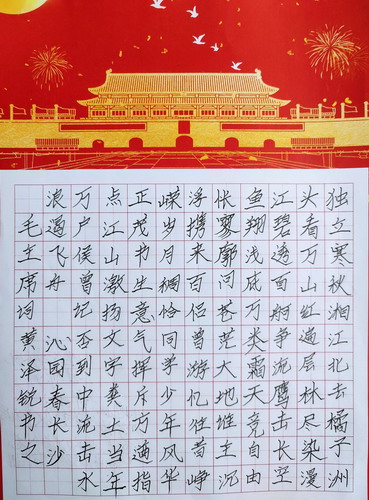 独立寒秋湘江北去橘子洲
头看万山红遍层林尽染漫
江碧透百舸争流鹰击长空
鱼翔浅底万类霜天竞自由
怅寥廓问苍茫大地谁主沉
浮携来百侣曾游忆往昔峥
嵘岁月稠恰同学少年风华
正茂书生意气挥斥方遒指
点江山激扬文字粪土当年
万户侯曾记否到中流击水
浪遏飞舟 沁园春长沙
毛主席词 黄泽锐书之